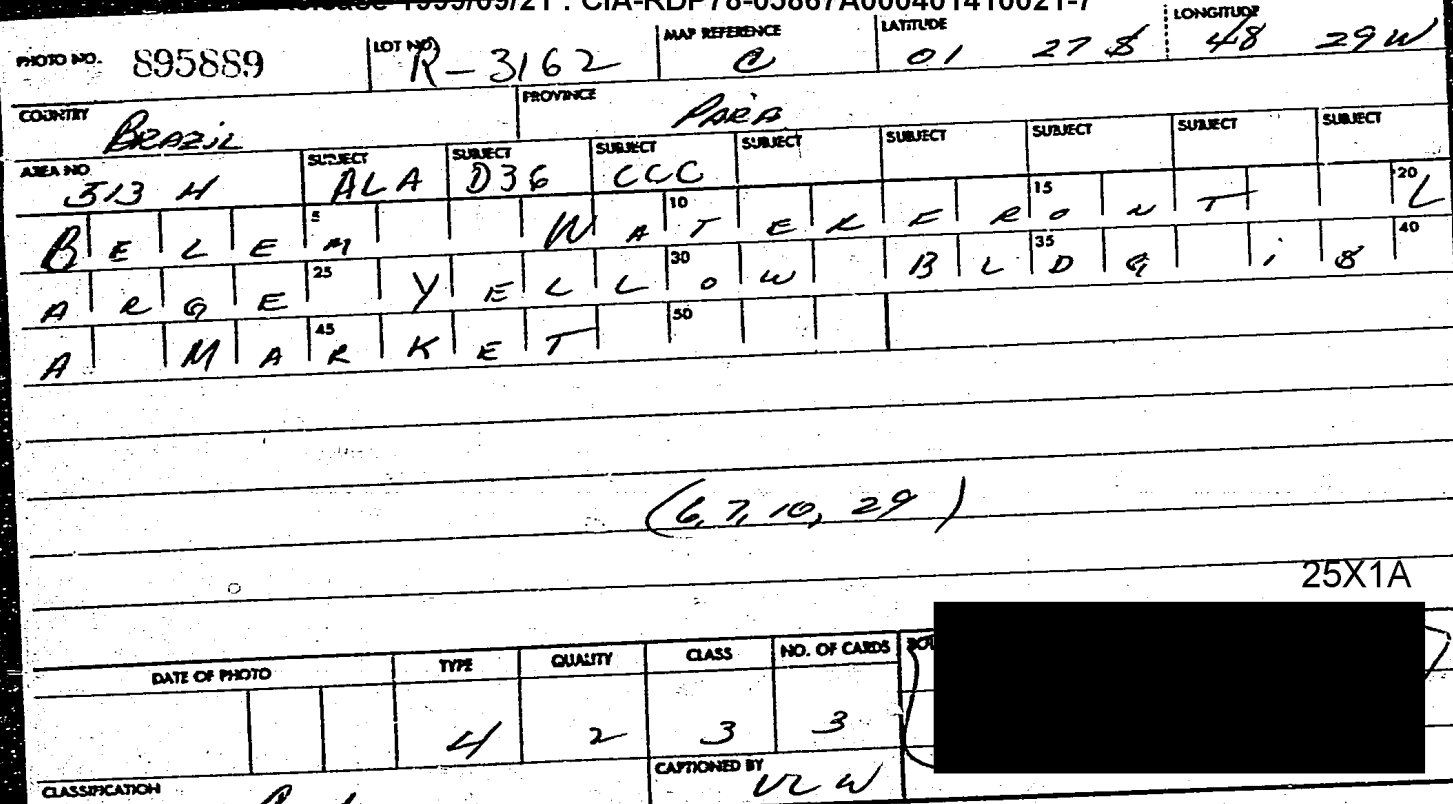 Release 1999/09/21 : CIA-RDP78-03867A000401410021-7
PHOTO NO. 895889 LOT NO. R-3162 MAP REFERENCE C LATITUDE 01 27 S LONGITUDE 48 29 W
COUNTRY BRAZIL PROVINCE PARA
AREA NO. 513 H SUBJECT ALA SUBJECT D36 SUBJECT CCC SUBJECT SUBJECT SUBJECT SUBJECT SUBJECT
BELEM 5 WATERFRONT 10 15 L 20
ARGE 25 YELLOW 30 BLDG 35 iS 40
A MARKET 45 50
(6, 7, 10, 29)
25X1A
DATE OF PHOTO TYPE QUALITY CLASS NO. OF CARDS
4 2 3 3
CLASSIFICATION CAPTIONED BY VLW